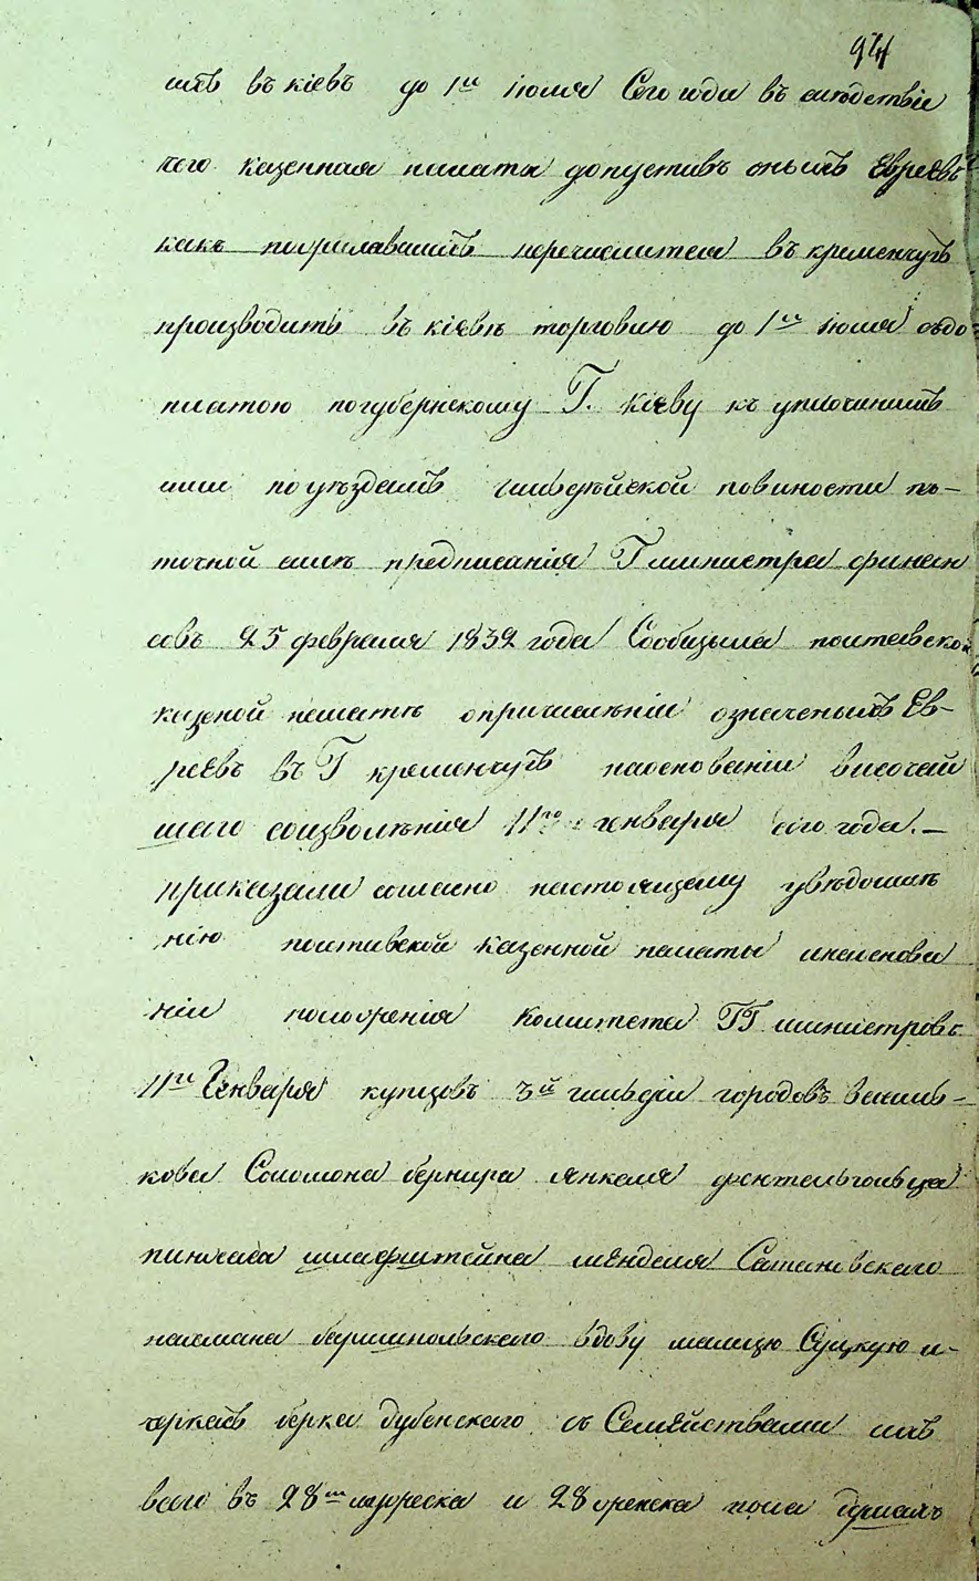 94
имъ въ кіевъ до 1го іюля Сего года въ слѣдствіе
чего казенная палата допустивъ онымъ Евреевъ
какъ пожелавшимъ перечислится въ кременчугъ
производить въ кіевѣ торговлю до 1го іюля здо
платою погубернскому Г. Кіеву къ уплоченнимъ
ими поуѣздамъ гильдѣйской повиности по-
точной силѣ предписанія Г министра финан
совъ 25 февраля 1832 года Сообщыла полтавской
казеной палатѣ опричисленіи означеныхъ Ев-
реевъ въ Г кременчугъ наоснованіи височай
шего соизволѣнія 11го генваря сего года. —
приказали согласно настоящему увѣдомлѣ
нію полтавской казенной палаты инаоснова
ніи положенія Комитета ГГ министровъ
11го Генваря купцовъ 3й гильдіи городовъ василь-
кова Соломона бернира Янкеля фонтельгольца
пинхаса шлафштейна мѣнделя Сатановскаго
нахмана баришпольского вдову малицю Суцкую и-
черкасъ берка дубенского съ Семѣйствами ихъ
всего въ 28ми мужеска и 28 женска пола душахъ